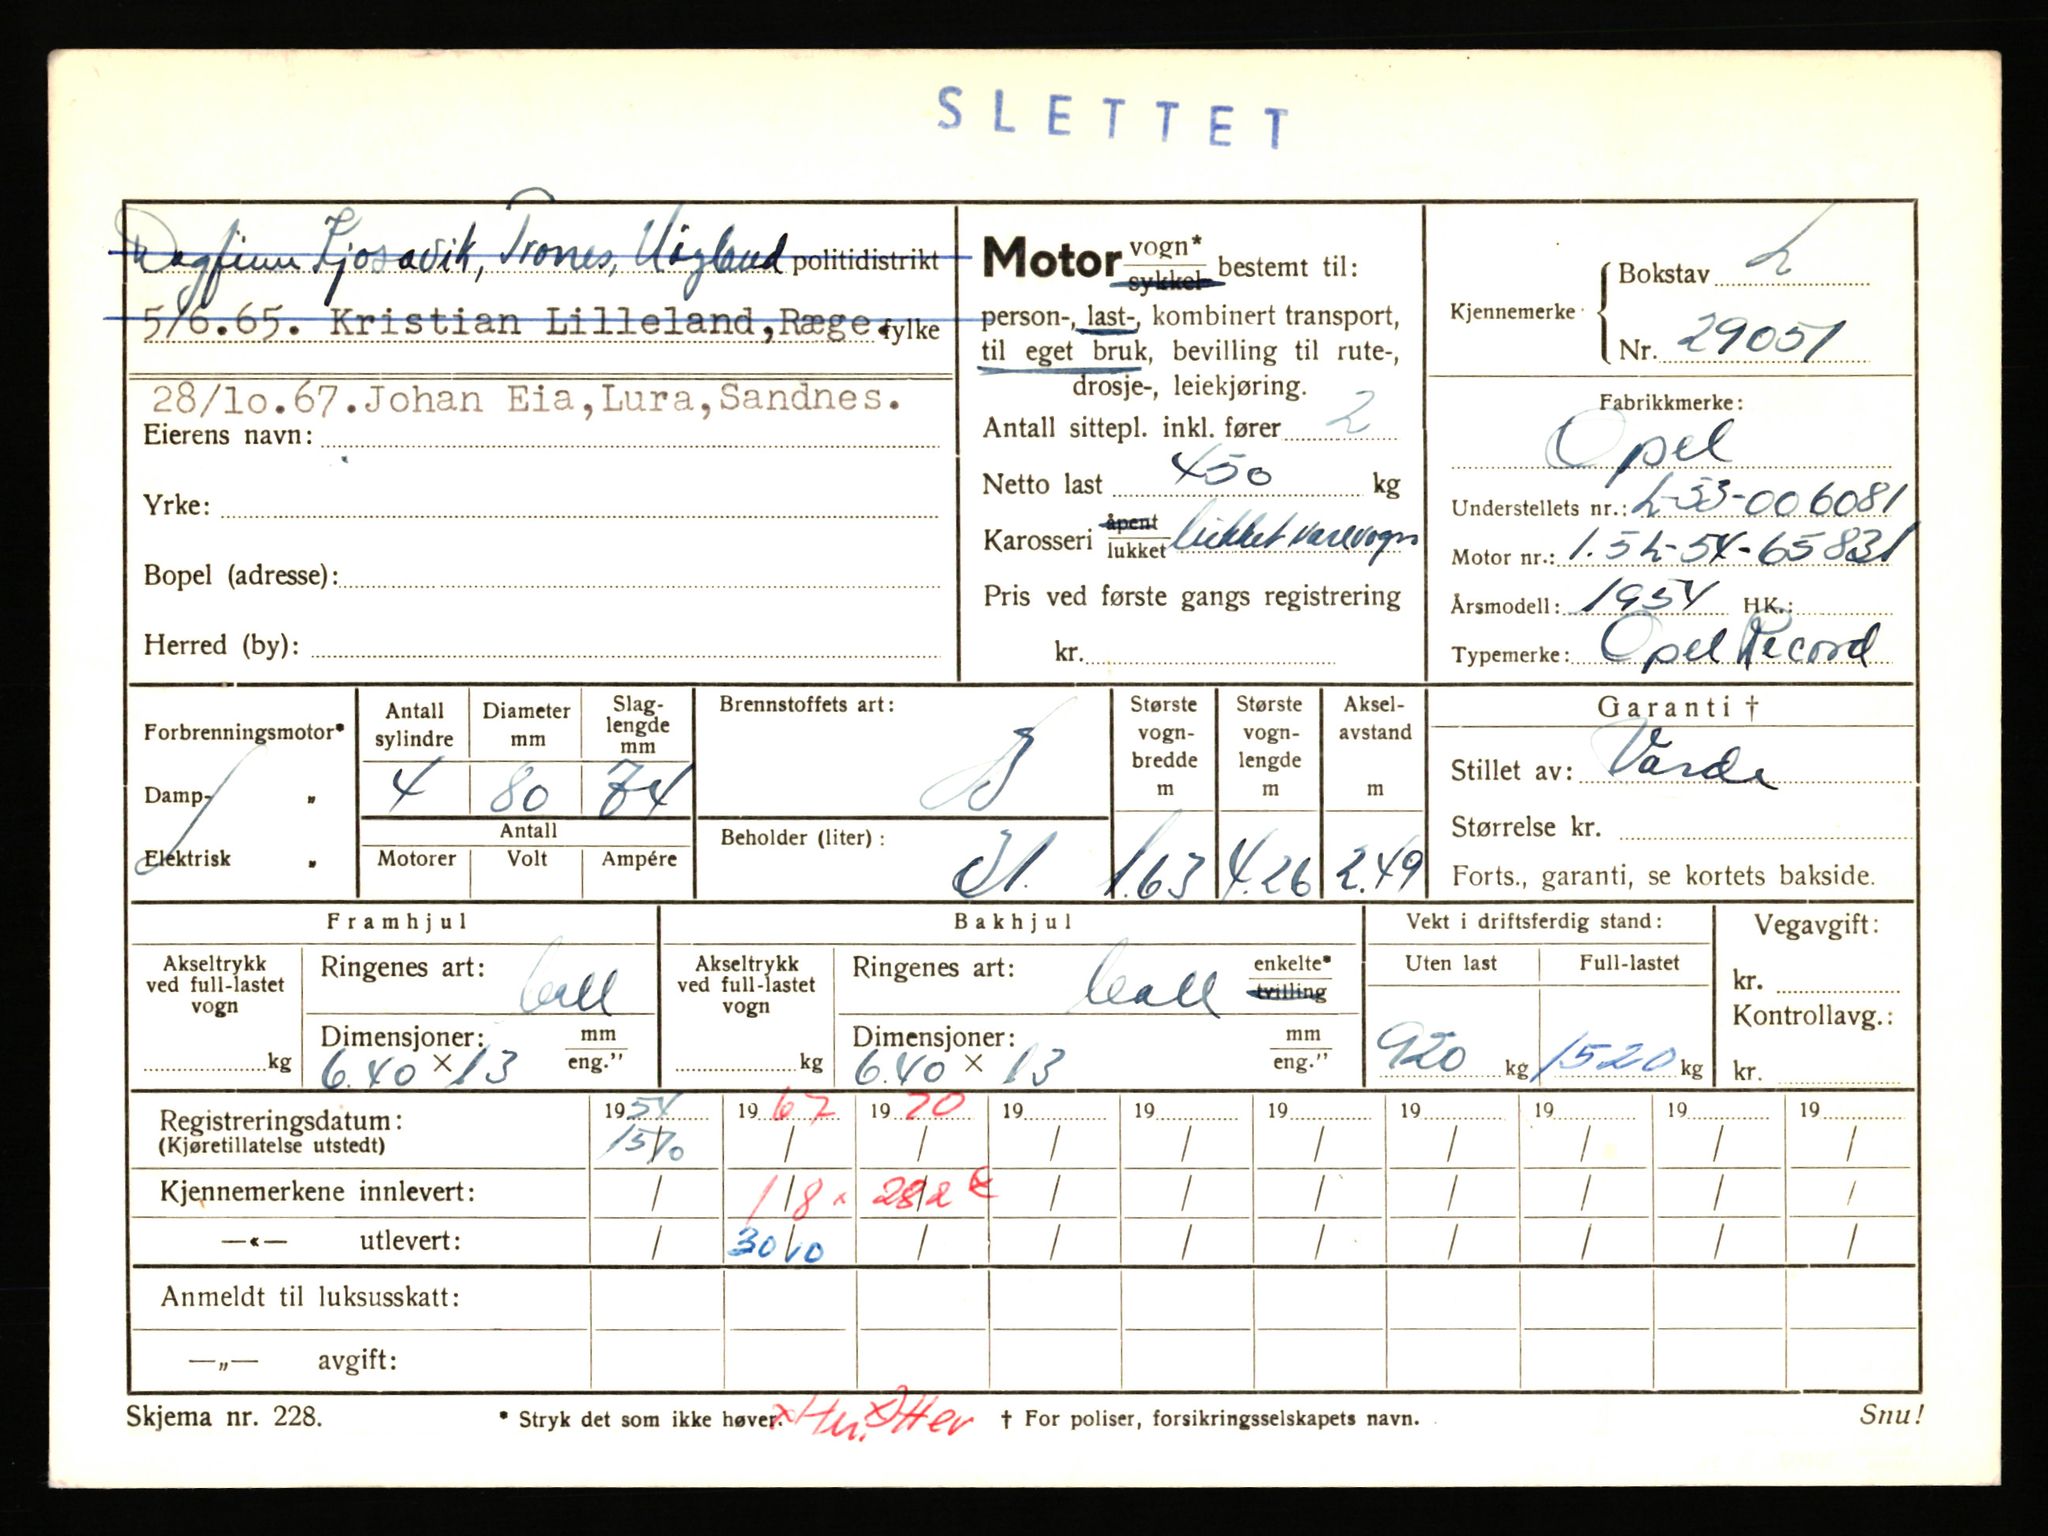 SLETTET
Dagfinn Kjosavik, Trones, Høgland politidistrikt
5/6.65. Kristian Lilleland, Ræge. fylke
28/10.67. Johan Eia, Lura, Sandnes.
Eierens navn:
Yrke:
Bopel (adresse):
Herred (by):
Motor vogn* sykkel bestemt til:
person-, last-, kombinert transport,
til eget bruk, bevilling til rute-,
drosje-, leiekjøring.
Antall sittepl. inkl. fører 2
Netto last 450 kg
Karosseri åpent lukket lukket varevogn
Pris ved første gangs registrering
kr.
Kjennemerke
Bokstav L
Nr. 29051
Fabrikkmerke:
Opel
Understellets nr.: L-53-006081
Motor nr.: 1.5L-54-65831
Årsmodell: 1954 HK.:
Typemerke: Opel Record
Forbrenningsmotor*
Damp- „
Elektrisk „
Antall sylindre 4
Diameter mm 80
Slag-lengde mm 74
Antall
Motorer Volt Ampére
Brennstoffets art: B
Beholder (liter): 31.
Største vogn-bredde m 1.63
Største vogn-lengde m 4.26
Aksel-avstand m 2.49
Garanti †
Stillet av: Varde
Størrelse kr.
Forts., garanti, se kortets bakside.
Framhjul
Akseltrykk ved full-lastet vogn kg
Ringenes art:
Dimensjoner: mm eng."
6.40 × 13
Bakhjul
Akseltrykk ved full-lastet vogn kg
Ringenes art: enkelte* tvilling
Dimensjoner: mm eng."
6.40 × 13
Vekt i driftsferdig stand:
Uten last Full-lastet
920 kg 1520 kg
Vegavgift:
kr.
Kontrollavg.:
kr.
Registreringsdatum: 1954 1967 1970 19 19 19 19 19 19 19
(Kjøretillatelse utstedt) 15/10 / / / / / / / / /
Kjennemerkene innlevert: / 1/8 × 28/2 / / / / / / /
—«— utlevert: / 30/10 / / / / / / / /
Anmeldt til luksusskatt:
—„— avgift:
Skjema nr. 228. * Stryk det som ikke høver. † For poliser, forsikringsselskapets navn. Snu!